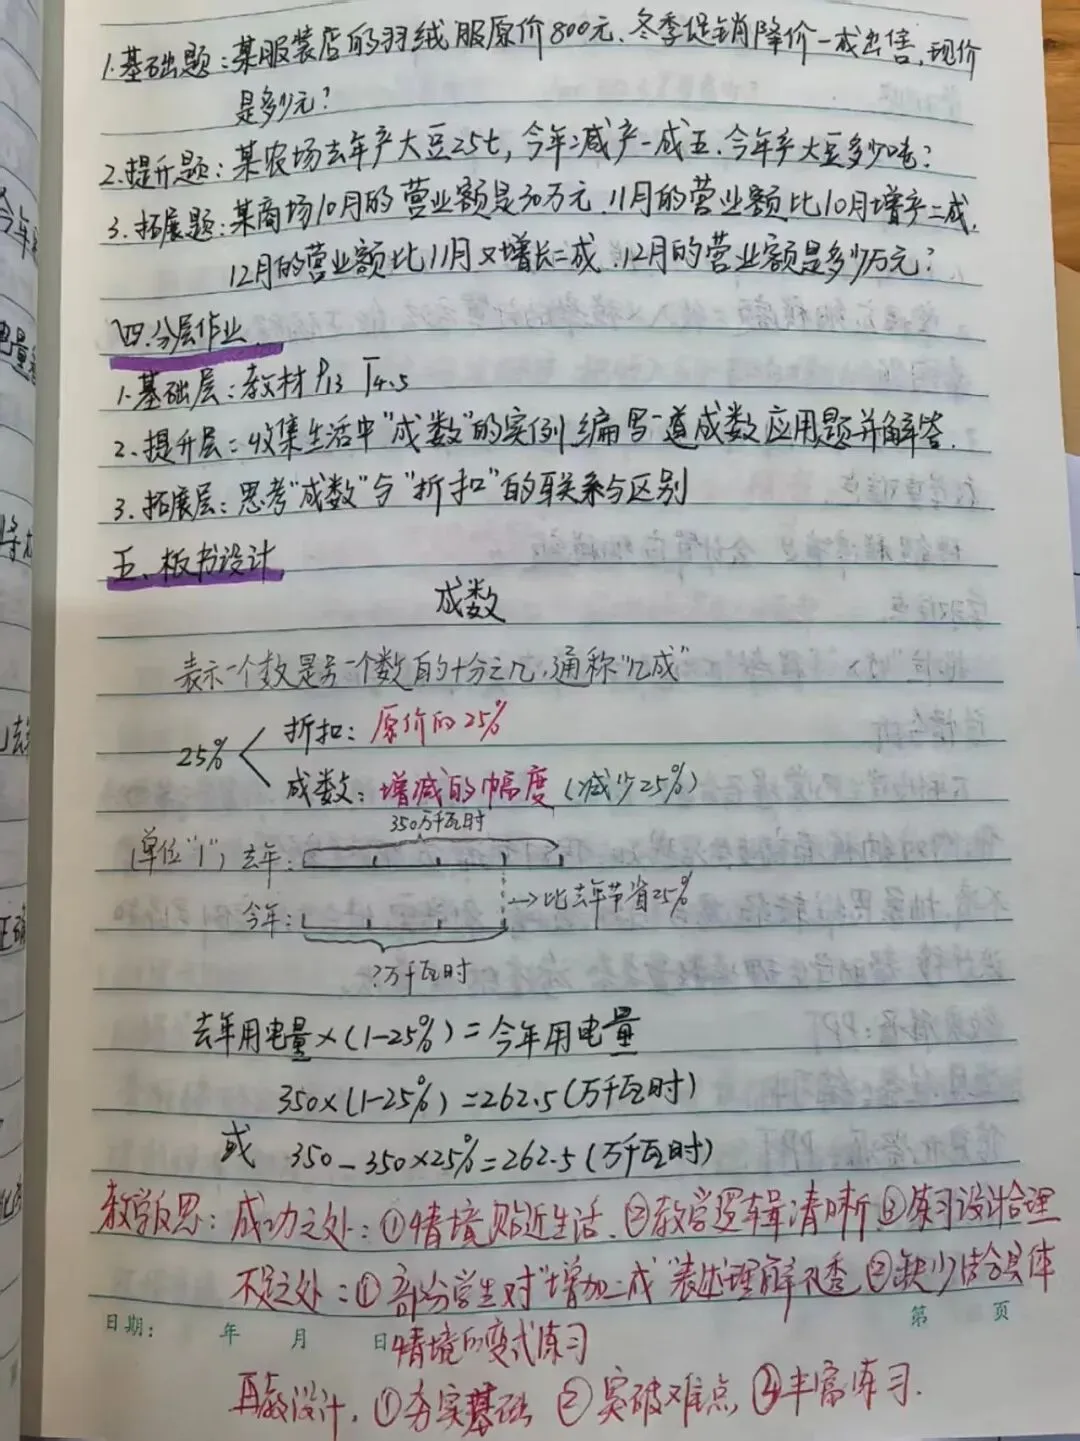 1.基础题:某服装店的羽绒服原价800元、冬季促销降价一成出售,现价
是多少元?
2.提升题:某农场去年产大豆25t,今年减产一成五.今年产大豆多少吨?
3.拓展题:某商场10月的营业额是30万元.11月的营业额比10月增产二成,
12月的营业额比11月又增长二成.12月的营业额是多少万元?
四.分层作业
1.基础层:教材P13 T4.5
2.提升层:收集生活中“成数”的实例,编写一道成数应用题并解答.
3.拓展层:思考“成数”与“折扣”的联系与区别
五、板书设计
成数
表示一个数是另一个数百的十分之几,通称“几成”
25%
折扣:原价的25%
成数:增减的幅度(减少25%)
350万千瓦时
(单位“1”)去年:
→比去年节省25%
今年:
?万千瓦时
去年用电量×(1-25%)=今年用电量
350×(1-25%)=262.5(万千瓦时)
或 350-350×25%=262.5(万千瓦时)
教学反思:成功之处:①情境贴近生活.②教学逻辑清晰③练习设计合理
不足之处:①部分学生对“增加二成”表述理解不透②缺少结合具体
日期: 年 月 日 第 页
情境的变式练习
再教设计.①夯实基础②突破难点③丰富练习.